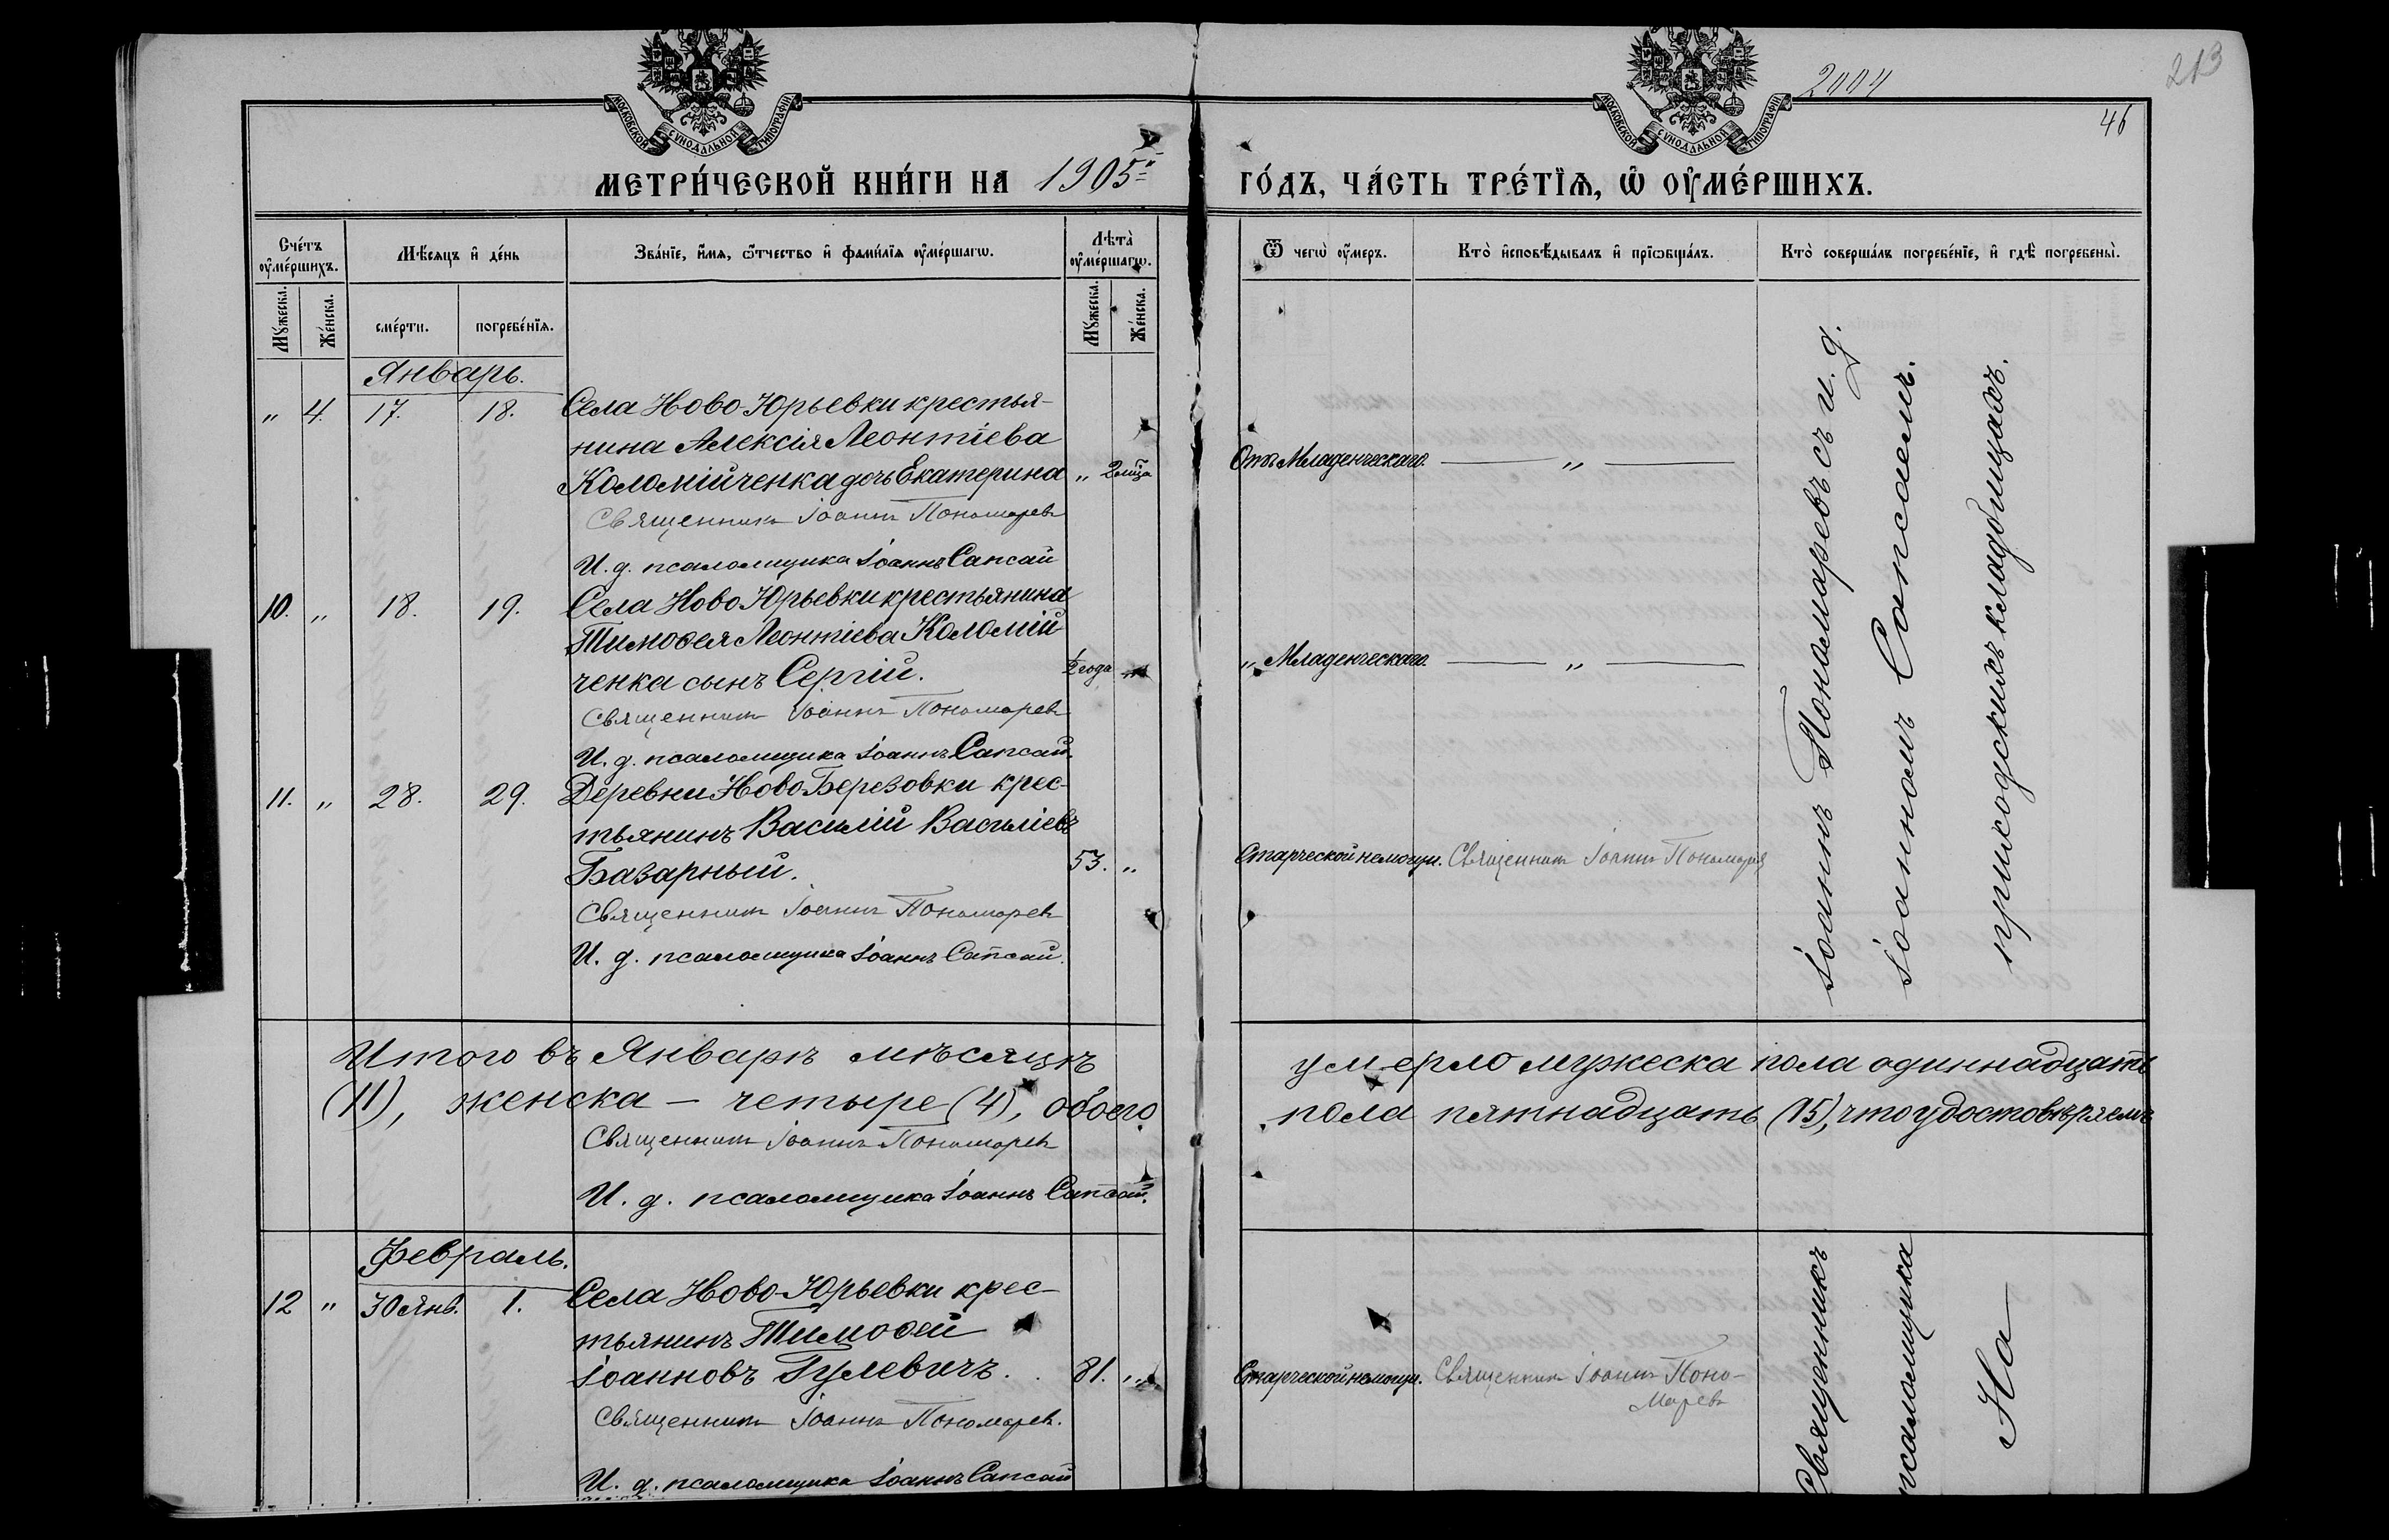 2004
213
46
МОСКОВСКОЙ СѴНОДАЛЬНОЙ ТИПОГРАФІИ
МОСКОВСКОЙ СѴНОДАЛЬНОЙ ТИПОГРАФІИ
МЕТРИ́ЧЕСКОЙ КНИ́ГИ НА 1905й ГО́ДЪ, ЧА́СТЬ ТРЕ́ТІѦ, Ѡ҆ ОУ҆МЕ́РШИХЪ.
Сче́тъ оу҆ме́ршихъ.
Мѣ́сяцъ и҆ де́нь
Зва́нїе, и҆́мя, ѻ҆́тчество и҆ фами́лїя оу҆ме́ршагѡ.
Лѣта̀ оу҆ме́ршагѡ.
Ѿ чегѡ̀ оу҆́меръ.
Кто̀ и҆сповѣ́дывалъ и҆ прїѡбща́лъ.
Кто̀ соверша́лъ погребе́нїе, и҆ гдѣ̀ погребены̀.
Мꙋ́жеска.
Же́нска.
сме́рти.
погребе́нїя.
Мꙋ́жеска.
Же́нска.
Январь.
" 4. 17. 18. Села Ново-Юрьевки крестья-
нина Алексія Леонтіева
Коломійченка дочь Екатерина " 2 мца Отъ Младенческаго. — " —
Священникъ Іоаннъ Пономаревъ
И. д. псаломщика Іоаннъ Сапсай
10. " 18. 19. Села Ново Юрьевки крестьянина
Тимоѳея Леонтіева Коломій-
ченка сынъ Сергій. ½ года " " Младенческаго. — " —
Священникъ Іоаннъ Пономаревъ
И. д. псаломщика Іоаннъ Сапсай.
11. " 28. 29. Деревни Ново Березовки крес-
тьянинъ Василій Василіевъ
Базарный. 53. " Старческой немощи. Священникъ Іоаннъ Пономарев
Священникъ Іоаннъ Пономаревъ
И. д. псаломщика Іоаннъ Сапсай.
Іоаннъ Пономаревъ съ и. д.
Іоанномъ Сапсаемъ.
приходскихъ кладбищахъ.
Итого въ Январѣ мѣсяцѣ умерло мужеска пола одиннадцать
(11), женска — четыре (4), обоего пола пятнадцать (15), что удостовѣряемъ
Священникъ Іоаннъ Пономаревъ
И. д. псаломщика Іоаннъ Сапсай.
Февраль.
12 " 30 Янв. 1. Села Ново-Юрьевки крес-
тьянинъ Тимоѳей
Іоанновъ Гулевичъ. 81. " Старческой немощи. Священникъ Іоаннъ Поно-
маревъ
Священникъ Іоаннъ Пономаревъ.
И. д. псаломщика Іоаннъ Сапсай
Священникъ
псаломщика
На